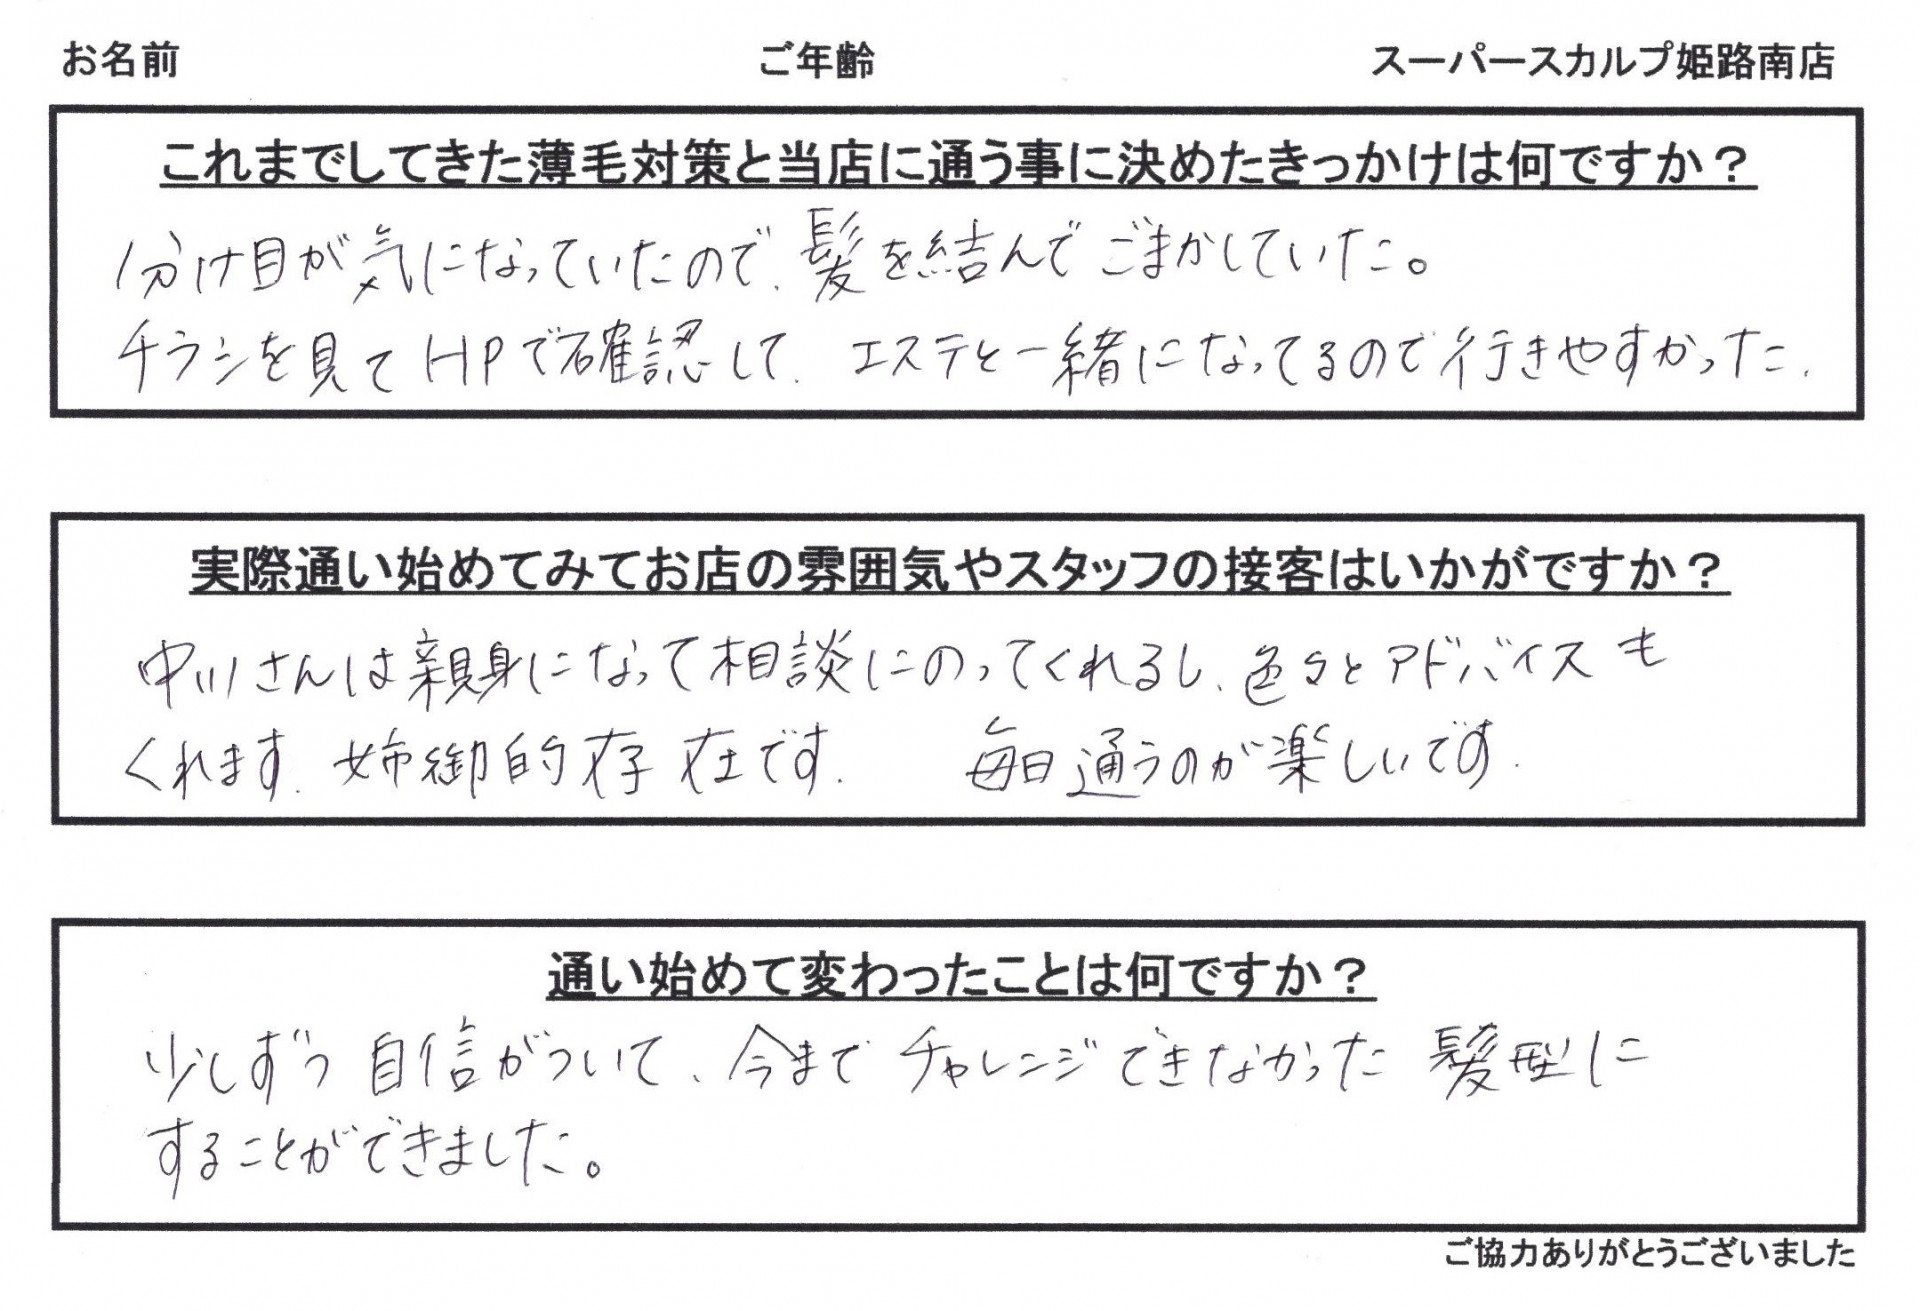 お名前 ご年齢 スーパースカルプ姫路南店
これまでしてきた薄毛対策と当店に通う事に決めたきっかけは何ですか？
分け目が気になっていたので、髪を結んでごまかしていた。
チラシを見てHPで確認して、エステと一緒になってるので行きやすかった、
実際通い始めてみてお店の雰囲気やスタッフの接客はいかがですか？
中川さんは親身になって相談にのってくれるし、色々とアドバイスも
くれます。姉御的存在です。 毎日通うのが楽しいです。
通い始めて変わったことは何ですか？
少しずつ自信がついて、今までチャレンジできなかった髪型に
することができました。
ご協力ありがとうございました